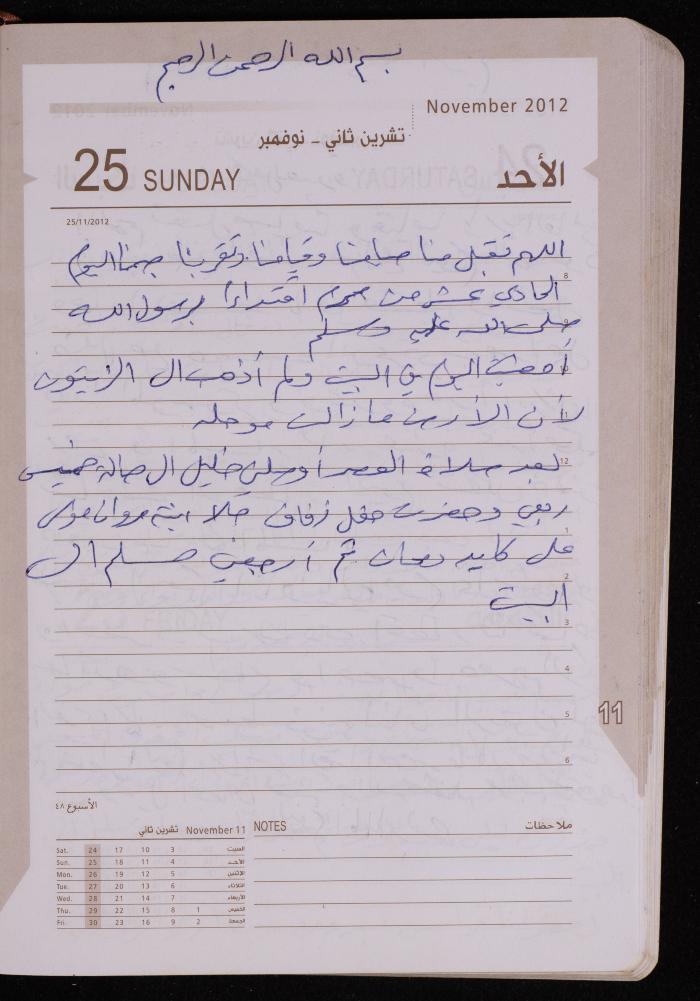 بسم الله الرحمن الرحيم
November 2012
تشرين ثاني - نوفمبر
25 SUNDAY
الأحد
25/11/2012
اللهم تقبل منا صيامنا وقيامنا وتقربنا صمنا اليوم
8
الحادي عشر من محرم اقتداءا برسول الله
صلى الله عليه وسلم
أمضيت اليوم في البيت ولم أذهب الى الزيتون
لأن الأرض ما زالت موحله
12
بعد صلاة العصر أوصلني خليل الى صالة خميس
ربعي وحضرت حفل زفاف ابنة مروان
1
على كايد ثم أرجعني مسلم الى
2
البيت
3
4
5
11
6
الأسبوع ٤٨
November 11 تشرين ثاني
NOTES
ملاحظات
Sat. 24 17 10 3 السبت
Sun. 25 18 11 4 الأحد
Mon. 26 19 12 5 الاثنين
Tue. 27 20 13 6 الثلاثاء
Wed. 28 21 14 7 الأربعاء
Thu. 29 22 15 8 1 الخميس
Fri. 30 23 16 9 2 الجمعة